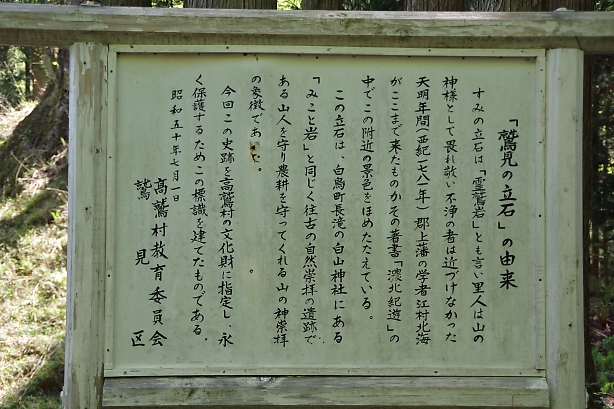 「鷲見の立石」の由来
すみの立石は「霊鷲岩」とも言い里人は山の
神様として畏れ敬い不浄の者は近づけなかった
天明年間(西紀一七八一年)郡上藩の学者江村北海
がここまで来たものかその著書「濃北紀遊」の
中でこの附近の景色をほめたたえている。
この立石は、白鳥町長滝の白山神社にある
「みこと岩」と同じく往古の自然崇拝の遺跡で
ある山人を守り農耕を守ってくれる山の神崇拝
の象徴であ
今回この史跡を高鷲村の文化財に指定し、永
く保護するためこの標識を建てたものである。
昭和五十年七月一日
高鷲村教育委員会
鷲見区